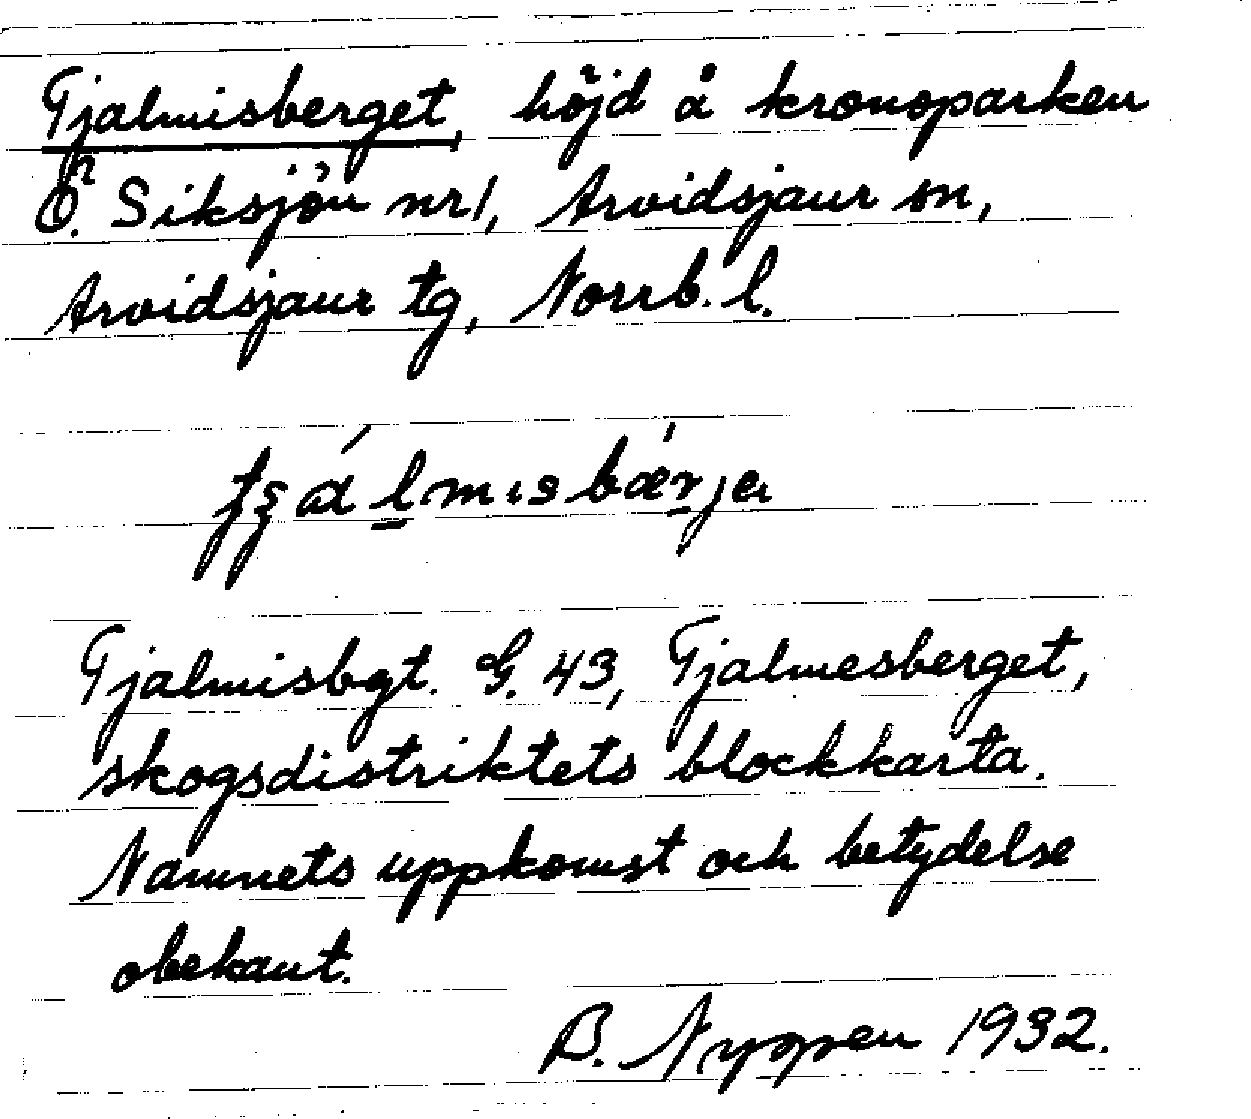 Tjalmisberget, höjd å kronoparken
Ö. Siksjön nr 1, Arvidsjaur sn,
Arvidsjaur tg, Norrb. l.
Tjalmisbgt. G. 43, Tjalmesberget,
skogsdistriktets blockkarta.
Namnets uppkomst och betydelse
obekant.
B. Nyppen 1932.